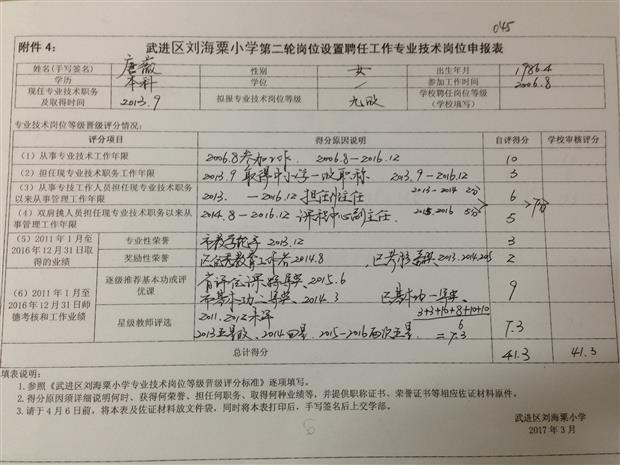 045
附件 4：
武进区刘海粟小学第二轮岗位设置聘任工作专业技术岗位申报表
姓名(手写签名) 唐薇 性别 女 出生年月 1986.4
学历 本科 学位 / 参加工作时间 2006.8
现任专业技术职务及取得时间 2013.9 拟报专业技术岗位等级 九级 学校聘任岗位等级（学校填写）
专业技术岗位等级晋级评分情况：
评分项目 得分原因说明 自评得分 学校审核评分
（1）从事专业技术工作年限 2006.8参加工作. 2006.8－2016.12 10
（2）担任现专业技术职务工作年限 2013.9 取得中小学一级职称 2013.9－2016.12 3
（3）从事专技工作人员担任现专业技术职务以来从事管理工作年限 2013. －2016.12 担任副主任 2013－2014 2分 6
（4）双肩挑人员担任现专业技术职务以来从事管理工作年限 2014.8－2016.12 课程中心副主任 2015.2016 5分 5
7分
（5）2011 年 1 月至 2016 年 12 月 31 日取得的业绩
专业性荣誉 市教学能手 2013.12 3
奖励性荣誉 区优秀教育工作者2014.8 区考核嘉奖2013.2014.2015 2
（6）2011 年 1 月至 2016 年 12 月 31 日师德考核和工作业绩
逐级推荐基本功或评优课 省评优课 特等奖 2015.6
市基本功二等奖. 2014.3 区基本功一等奖 9
星级教师评选 2011.2012未评 3+3+10+8+10+10
2013五星级、2014四星、2015－2016两次五星. 6 =7.3 7.3
总计得分 41.3 41.3
填表说明：
1. 参照《武进区刘海粟小学专业技术岗位等级晋级评分标准》逐项填写。
2. 得分原因须详细说明何时、获得何荣誉、担任何职务、取得何种业绩等，并提供职称证书、荣誉证书等相应佐证材料原件。
3. 请于 4 月 6 日前，将本表及佐证材料放文件袋，同时将本表打印后，手写签名后上交学部。
武进区刘海粟小学
2017 年 3 月